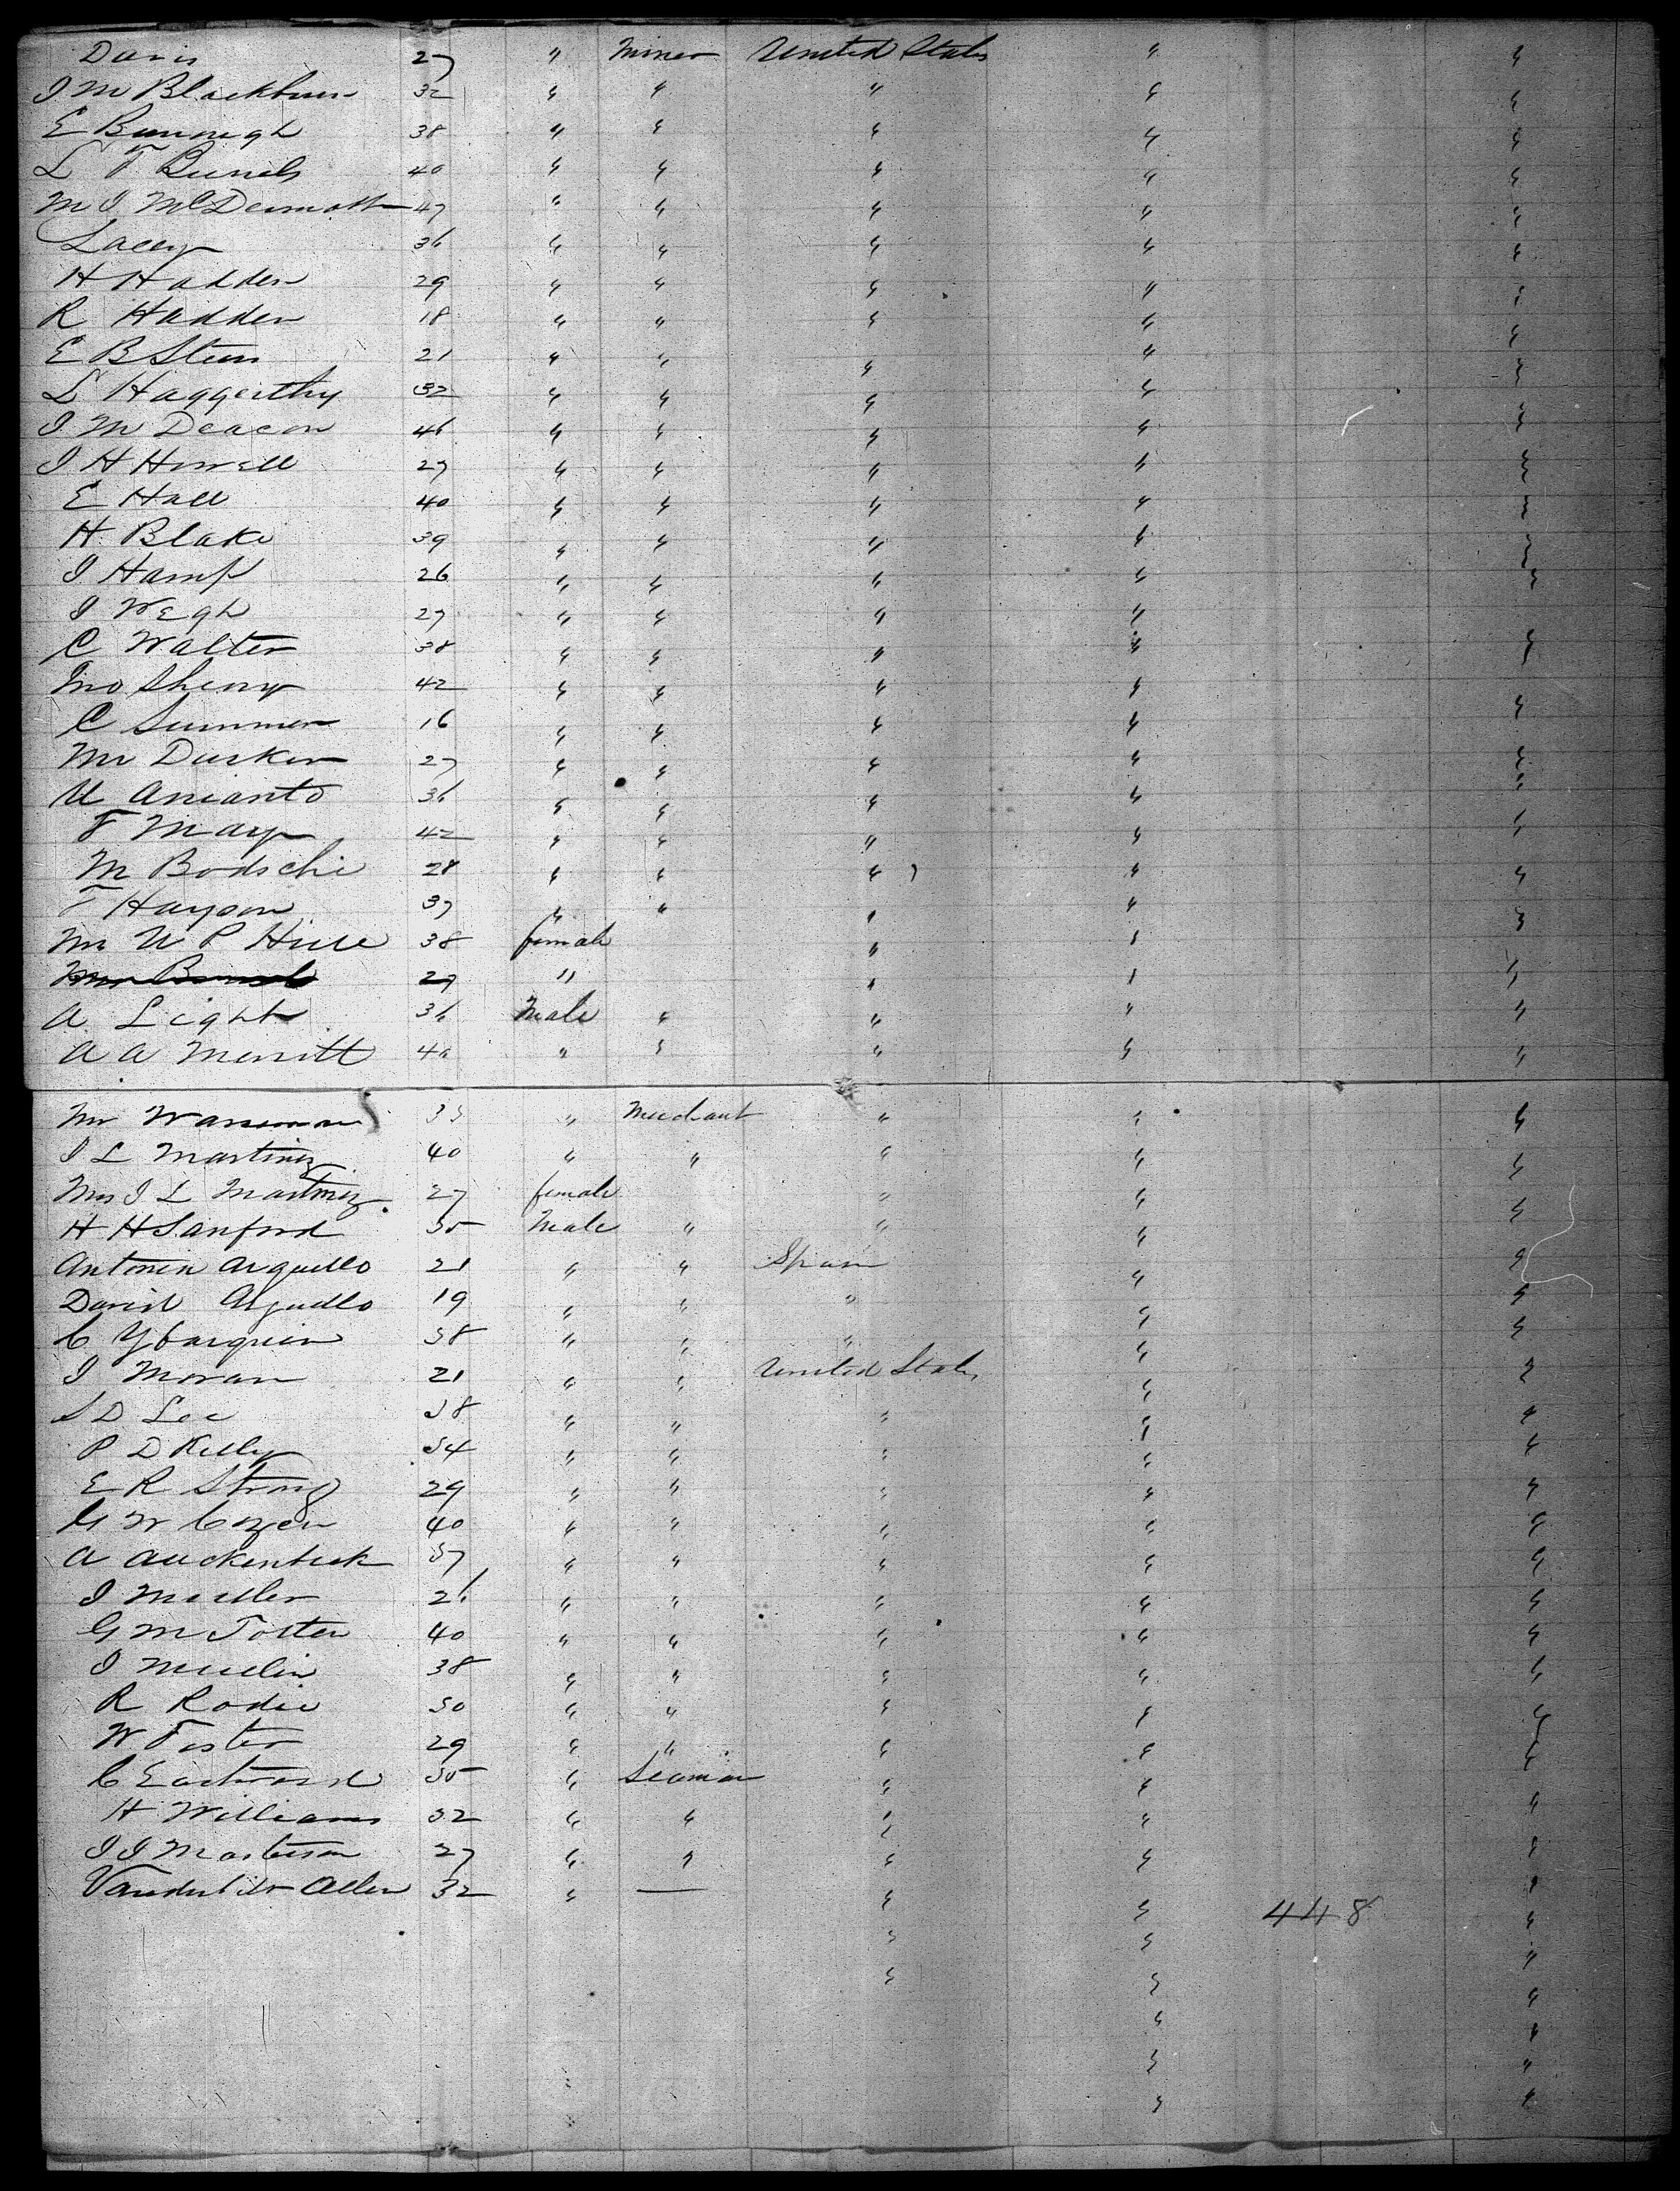 Davis 27 " Miner United States " "
I M Blackburn 32 " " " " "
E Burrough 38 " " " " "
L F 40 " " " " "
M I McDermott 47 " " " " "
Lacey 36 " " " " "
H Hadden 29 " " " " "
R Hadden 18 " " " " "
E B Stern 21 " " " " "
L Haggerthy 32 " " " " "
I M Deacon 46 " " " " "
I H Howell 27 " " " " "
E Hall 40 " " " " "
H Blake 39 " " " " "
I Hamp 26 " " " " "
I Wegh 27 " " " "
C Walter 38 " " " " "
Jno Sherry 42 " " " "
C Summer 16 " " " " "
Mr Durken 27 " " " " "
U Arianto 36 " " " " "
F May 42 " " " " "
M Bodschi 28 " " " " "
F Hayson 37 " " " "
Mrs U P Hill 38 female " " "
27 " " " "
A Light 36 Male " " " "
A A Merritt 40 " " " " "
Mr 35 " Merchant " " "
I L Martinez 40 " " " " "
Mrs I L Martinez 27 female " " "
H H Sanford 35 Male " " " "
Antonia Arguello 21 " " Spain " "
David Arguello 19 " " " " "
C Ybarguin 38 " " " " "
I Moran 21 " " United States " "
S D Lee 38 " " " " "
P D Kelly 34 " " " " "
E R Strong 29 " " " " "
G W Cozen 40 " " " " "
A Auckenbeck 37 " " " " "
I Muller 26 " " " " "
G M Totten 40 " " " " "
I Mullin 38 " " " " "
R Rodie 30 " " " " "
W Foster 29 " " " " "
C Eastwood 35 " Seaman " " "
H Williams 32 " " " " "
I I Masterson 27 " " " " "
Vanderbilt Allen 32 " — " " "
448